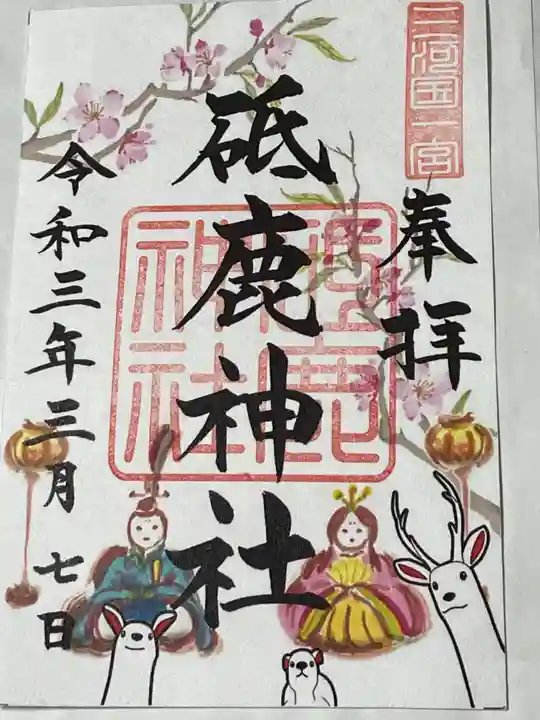 三河国一宮
奉拝
砥鹿神社
砥鹿神社
令和三年三月七日